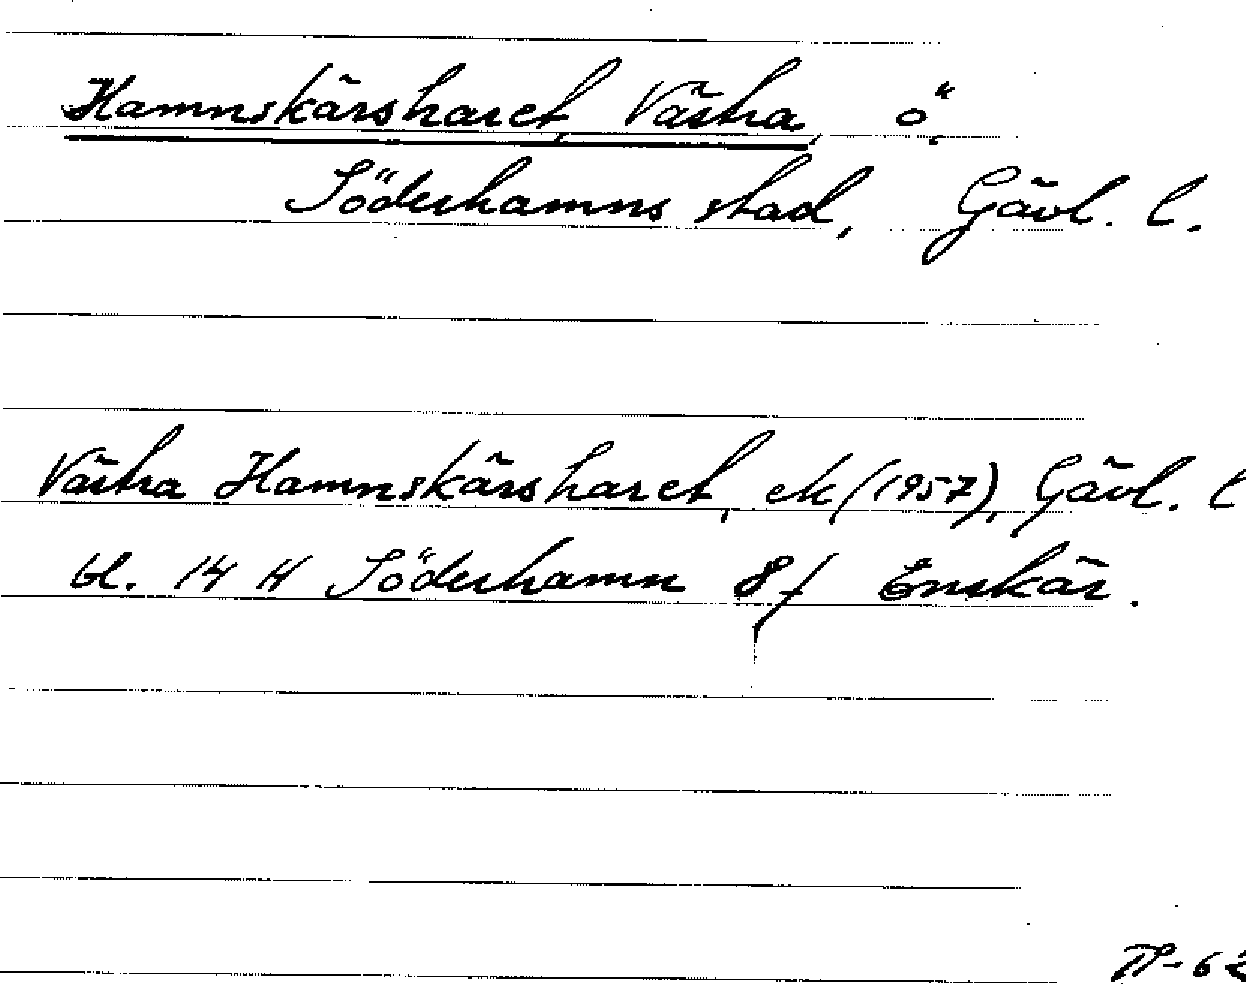 Hamnskärsharet, Västra, ö.
Söderhamns stad, Gävl. l.
Västra Hamnskärsharet, ek (1957), Gävl. l
bl. 14 H Söderhamn 8f Enskär.